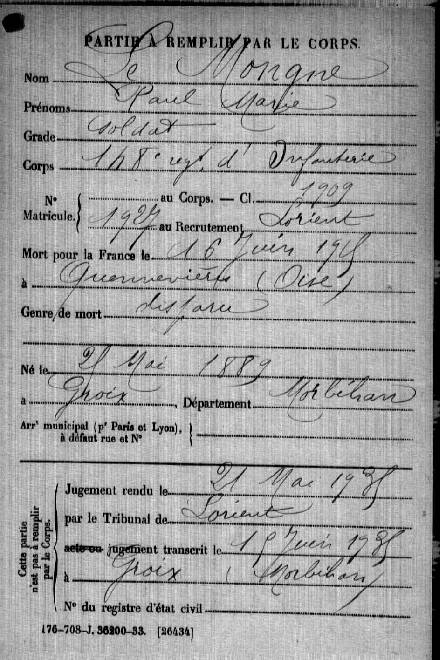 PARTIE À REMPLIR PAR LE CORPS.
Nom Le Mongne
Prénoms Paul Marie
Grade soldat
Corps 148e regt. d'Infanterie
N° Matricule. { au Corps. — Cl. 1909
1927 au Recrutement Lorient
Mort pour la France le 16 Juin 1915
à Quennevières (Oise)
Genre de mort disparu
Né le 25 Mai 1889
à Groix, Département Morbihan
Arr^t municipal (p^r Paris et Lyon), à défaut rue et N° {
Cette partie n'est pas à remplir par le Corps.
Jugement rendu le 21 Mai 1935
par le Tribunal de Lorient
acte ou jugement transcrit le 15 Juin 1935
à Groix (Morbihan)
N° du registre d'état civil
176-708-J. 36200-33. [26434]